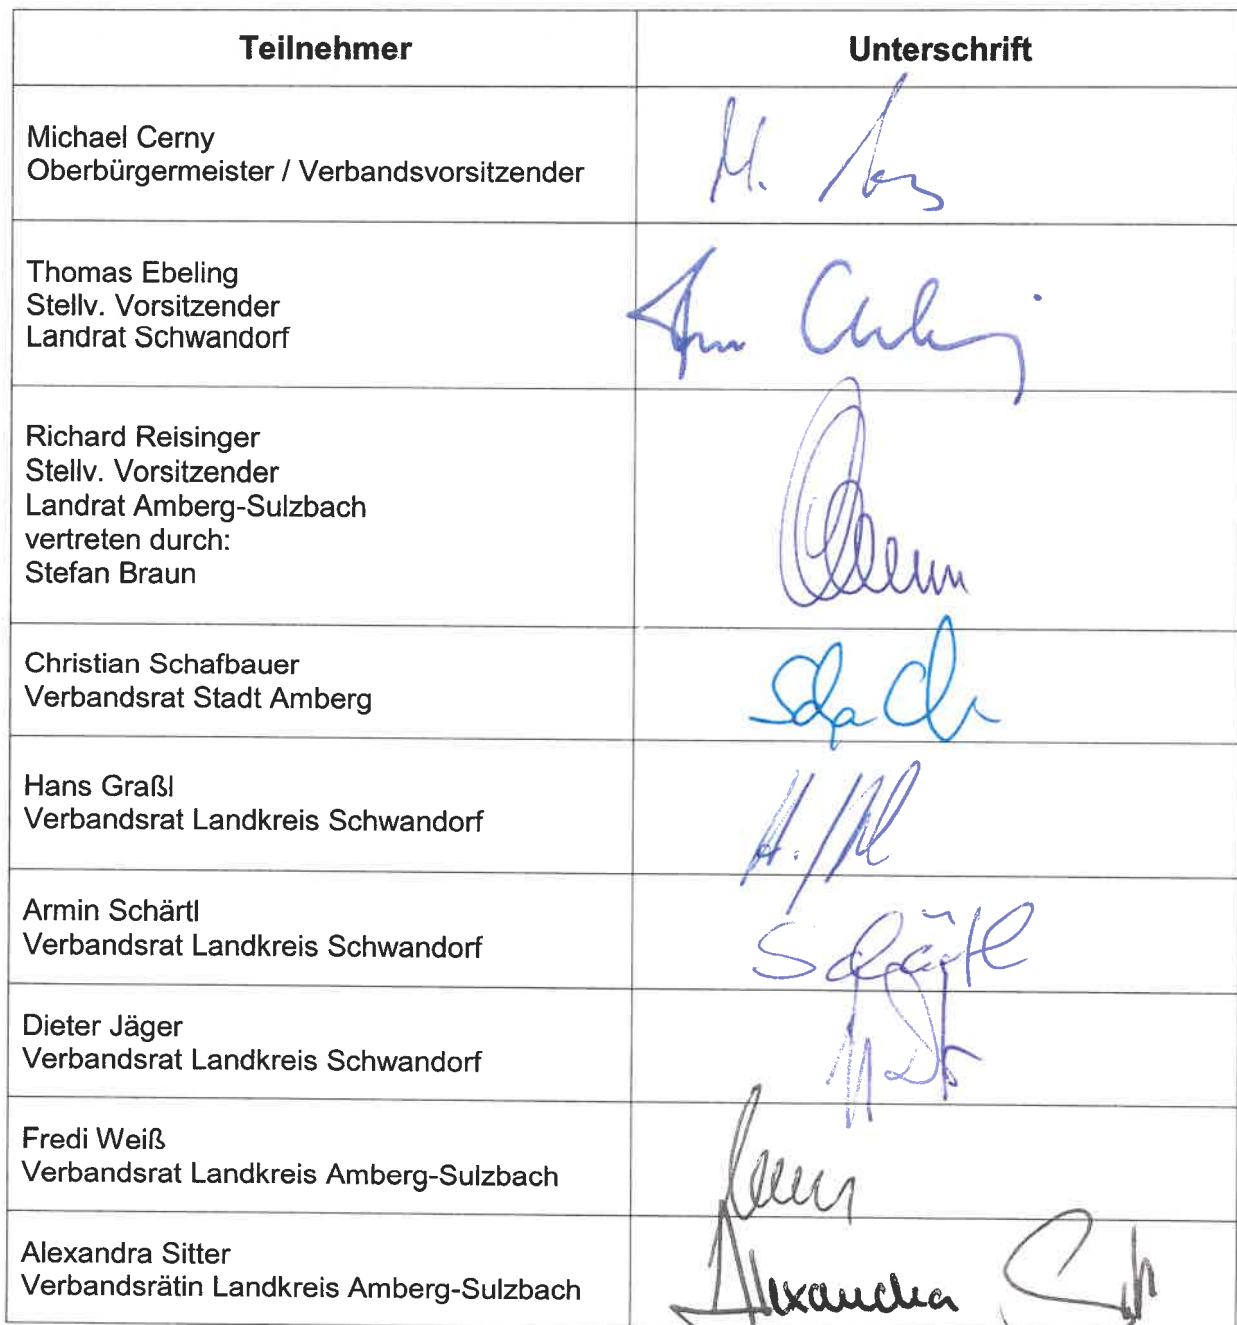 Teilnehmer
Unterschrift
Michael Cerny
Oberbürgermeister / Verbandsvorsitzender
M.
Thomas Ebeling
Stellv. Vorsitzender
Landrat Schwandorf
Richard Reisinger
Stellv. Vorsitzender
Landrat Amberg-Sulzbach
vertreten durch:
Stefan Braun
Christian Schafbauer
Verbandsrat Stadt Amberg
Hans Graßl
Verbandsrat Landkreis Schwandorf
H.
Armin Schärtl
Verbandsrat Landkreis Schwandorf
Schärtl
Dieter Jäger
Verbandsrat Landkreis Schwandorf
Fredi Weiß
Verbandsrat Landkreis Amberg-Sulzbach
Alexandra Sitter
Verbandsrätin Landkreis Amberg-Sulzbach
Alexandra